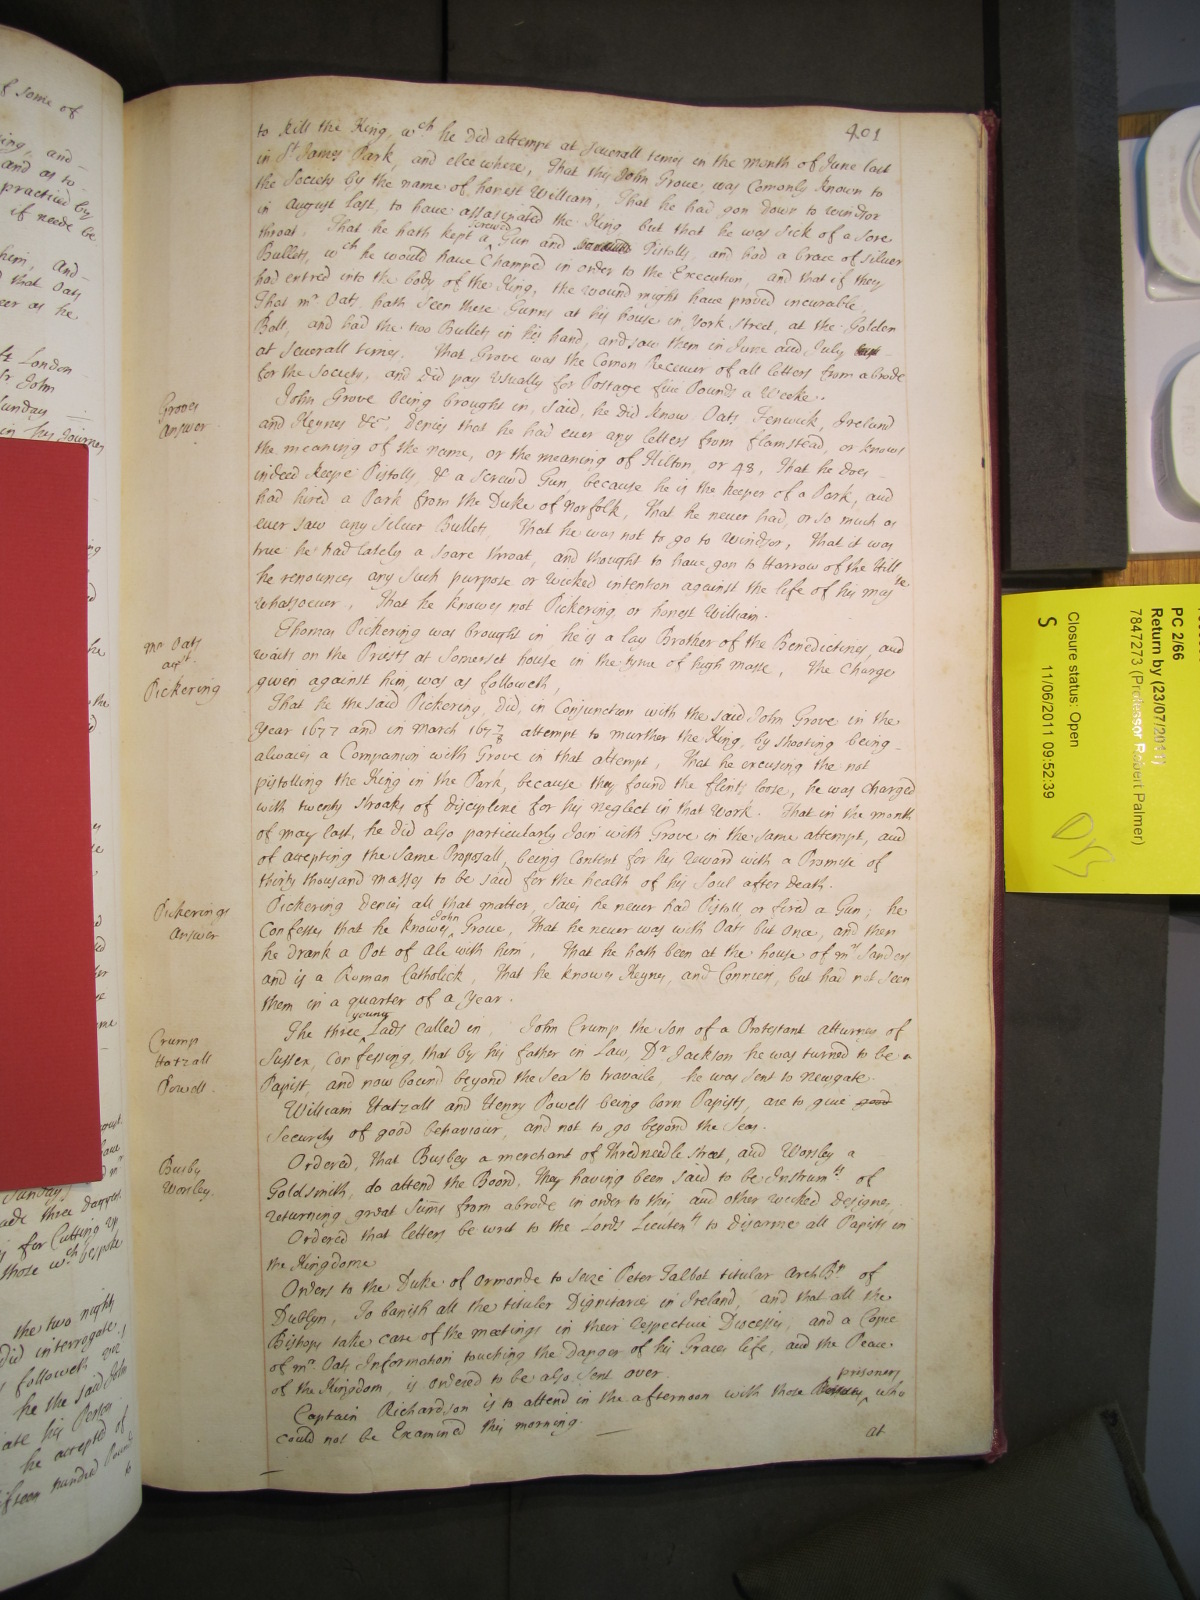 401
to kill the King, wch he did attempt at severall times in the month of June last
in St James Park, and elsewhere, That this John Grove, was Comonly known to
the Society by the name of honest William, That he had gon down to windsor
in August last, to have assassinated the King, but that he was sick of a sore
throat. That he hath kept a screwed Gun and Pistolls, and had a brace of silver
Bullets, wch he would have Champed in order to the Execution, and that if they
had entred into the body of the King, the wound might have proved incurable,
That mr Oats, hath seen these Gunns at his house in York street, at the Golden
Ball, and had the two Bullets in his hand, and saw them in June and July
at severall times. That Grove was the Comon Receiver of all letters from abrode
for the Society, and did pay usually for Postage five Pounds a Weeke.
Groves
Answer
John Grove being brought in, said, he did know Oats, Fenwick, Ireland
and Keynes &c, denies that he had ever any letters from flamstead, or knows
the meaning of the name, or the meaning of Hilton, or 48, That he does
indeed keepe Pistolls, & a screwd Gun, because he is the keeper of a Park, and
had hired a Park from the Duke of Norfolk, That he never had, or so much as
ever saw any silver Bullets, That he was not to go to windsor, That it was
true he had lately a soare throat, and thought to have gon to Harrow of the Hill
he renounces any such purpose or wicked intention against the life of his maste
whatsoever, That he knowes not Pickering or honest William.
mr Oats
agst
Pickering
Thomas Pickering was brought in he is a lay Brother of the Benedictines, and
waits on the Priests at Somerset house in the tyme of high masse, The Charge
given against him, was as followeth,
That he the said Pickering, did, in Conjunction with the said John Grove in the
Year 1677 and in March 1677/8 attempt to murther the King, by shooting being
alwaies a Companion with Grove in that attempt, That he excusing the not
pistolling the King in the Park, because they found the flints loose, he was charged
with twenty stroaks of discipline for his neglect in that work. That in the month
of may last, he did also particularly Join with Grove in the same attempt, and
of accepting the same Proposall, being Content for his reward with a Promise of
thirty thousand masses to be said for the health of his Soul after death.
Pickerings
Answer
Pickering denies all that matter, saies he never had Pistoll or fired a Gun; he
Confesses that he knowes John Grove, That he never was with Oats but once, and then
he drank a Pot of Ale with him, That he hath been at the house of mrs Sanders
and is a Roman Catholick, That he knowes Keynes, and Conniers, but had not seen
them in a quarter of a Year.
Crump
Hatzall
Powell.
The three young Lads called in, John Crump the son of a Protestant atturney of
Sussex, confessing, that by his father in Law, Dr Jackson he was turned to be a
Papist, and now bound beyond the Sea's to travaile, he was sent to newgate.
William Hatzall and Henry Powell being born Papists, are to give good
Security of good behaviour, and not to go beyond the Seas.
Busby
Worsley.
Ordered, that Busbey a merchant of thredneedle street, and Worsley a
Goldsmith, do attend the Board, They having been said to be Instrumts of
returning great Sums from abrode in order to this, and other wicked designes,
Ordered that letters be writ to the Lords Lieutents to disarme all Papists in
the Kingdome
Orders to the Duke of Ormonde to seize Peter Talbot titular ArchBp of
Dublyn, To banish all the tituler Dignitaries in Ireland, and that all the
Bishops take care of the meetings in their respective Diocesses, and a Copie
of mr. Oats Information touching the Danger of his Graces life, and the Peace
of the Kingdom, is ordered to be also sent over.
Captain Richardson is to attend in the afternoon with those prisoners, who
could not be Examined this morning.
at
PC 2/66
Return by (23/07/2011)
7847273 (Professor Robert Palmer)
Closure status: Open
S 11/06/2011 09:52:39